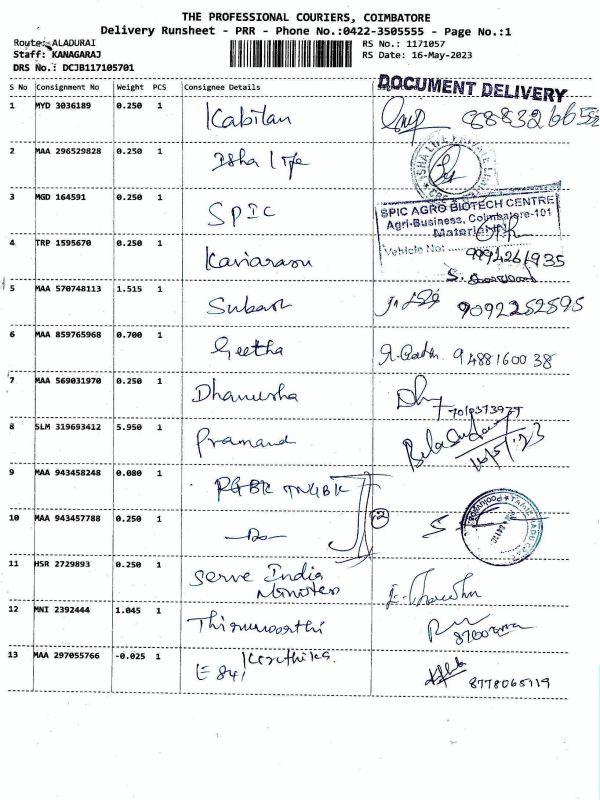 THE PROFESSIONAL COURIERS, COIMBATORE
Delivery Runsheet - PRR - Phone No.:0422-3505555 - Page No.:1
Route: ALADURAI
RS No.: 1171057
Staff: KANAGARAJ
RS Date: 16-May-2023
DRS No.: DCJB117105701
DOCUMENT DELIVERY
S No Consignment No Weight PCS Consignee Details
1 MYD 3036189 0.250 1 Kabilan
2 MAA 296529828 0.250 1 Isha life
3 MGD 164591 0.250 1 SPIC
SPIC AGRO BIOTECH CENTRE
Agri-Business, Coimbatore-101
Vehicle No:
4 TRP 1595670 0.250 1
5 MAA 570748113 1.515 1 Subash 9092252595
6 MAA 859765968 0.700 1 Geetha 9488160038
7 MAA 569031970 0.250 1 Dhanusha
8 SLM 319693412 5.950 1 Pramand
16/5/23
9 MAA 943458248 0.080 1 PGBK TNGBK
10 MAA 943457788 0.250 1 -Do-
2
11 HSR 2729893 0.250 1 Serve India
12 MNI 2392444 1.045 1 Thirumoorthi
13 MAA 297055766 -0.025 1 Karthika.
E 841 8778065119